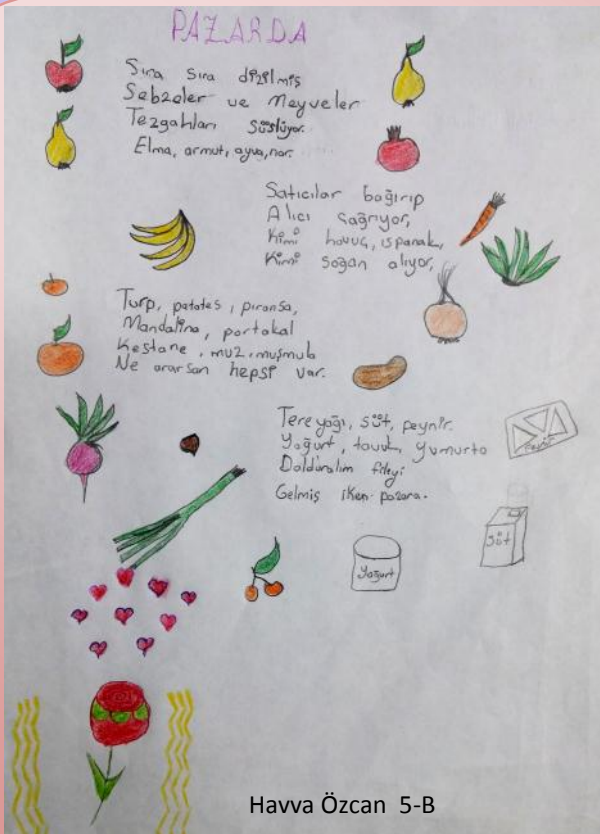 PAZARDA
Sıra sıra dizilmiş
Sebzeler ve Meyveler
Tezgahları Süslüyor.
Elma, armut, ayva, nar.
Satıcılar bağırıp
Alıcı çağrıyor,
Kimi havuç, ıspanak,
Kimi soğan alıyor,
Turp, patates, pıransa,
Mandalina, portakal
Kestane, muz, muşmula
Ne ararsan hepsi var.
Tereyağı, süt, peynir.
Yoğurt, tavuk, yumurta
Dolduralım fileyi
Gelmiş iken pazara.
Peynir
Süt
Yoğurt
Havva Özcan 5-B